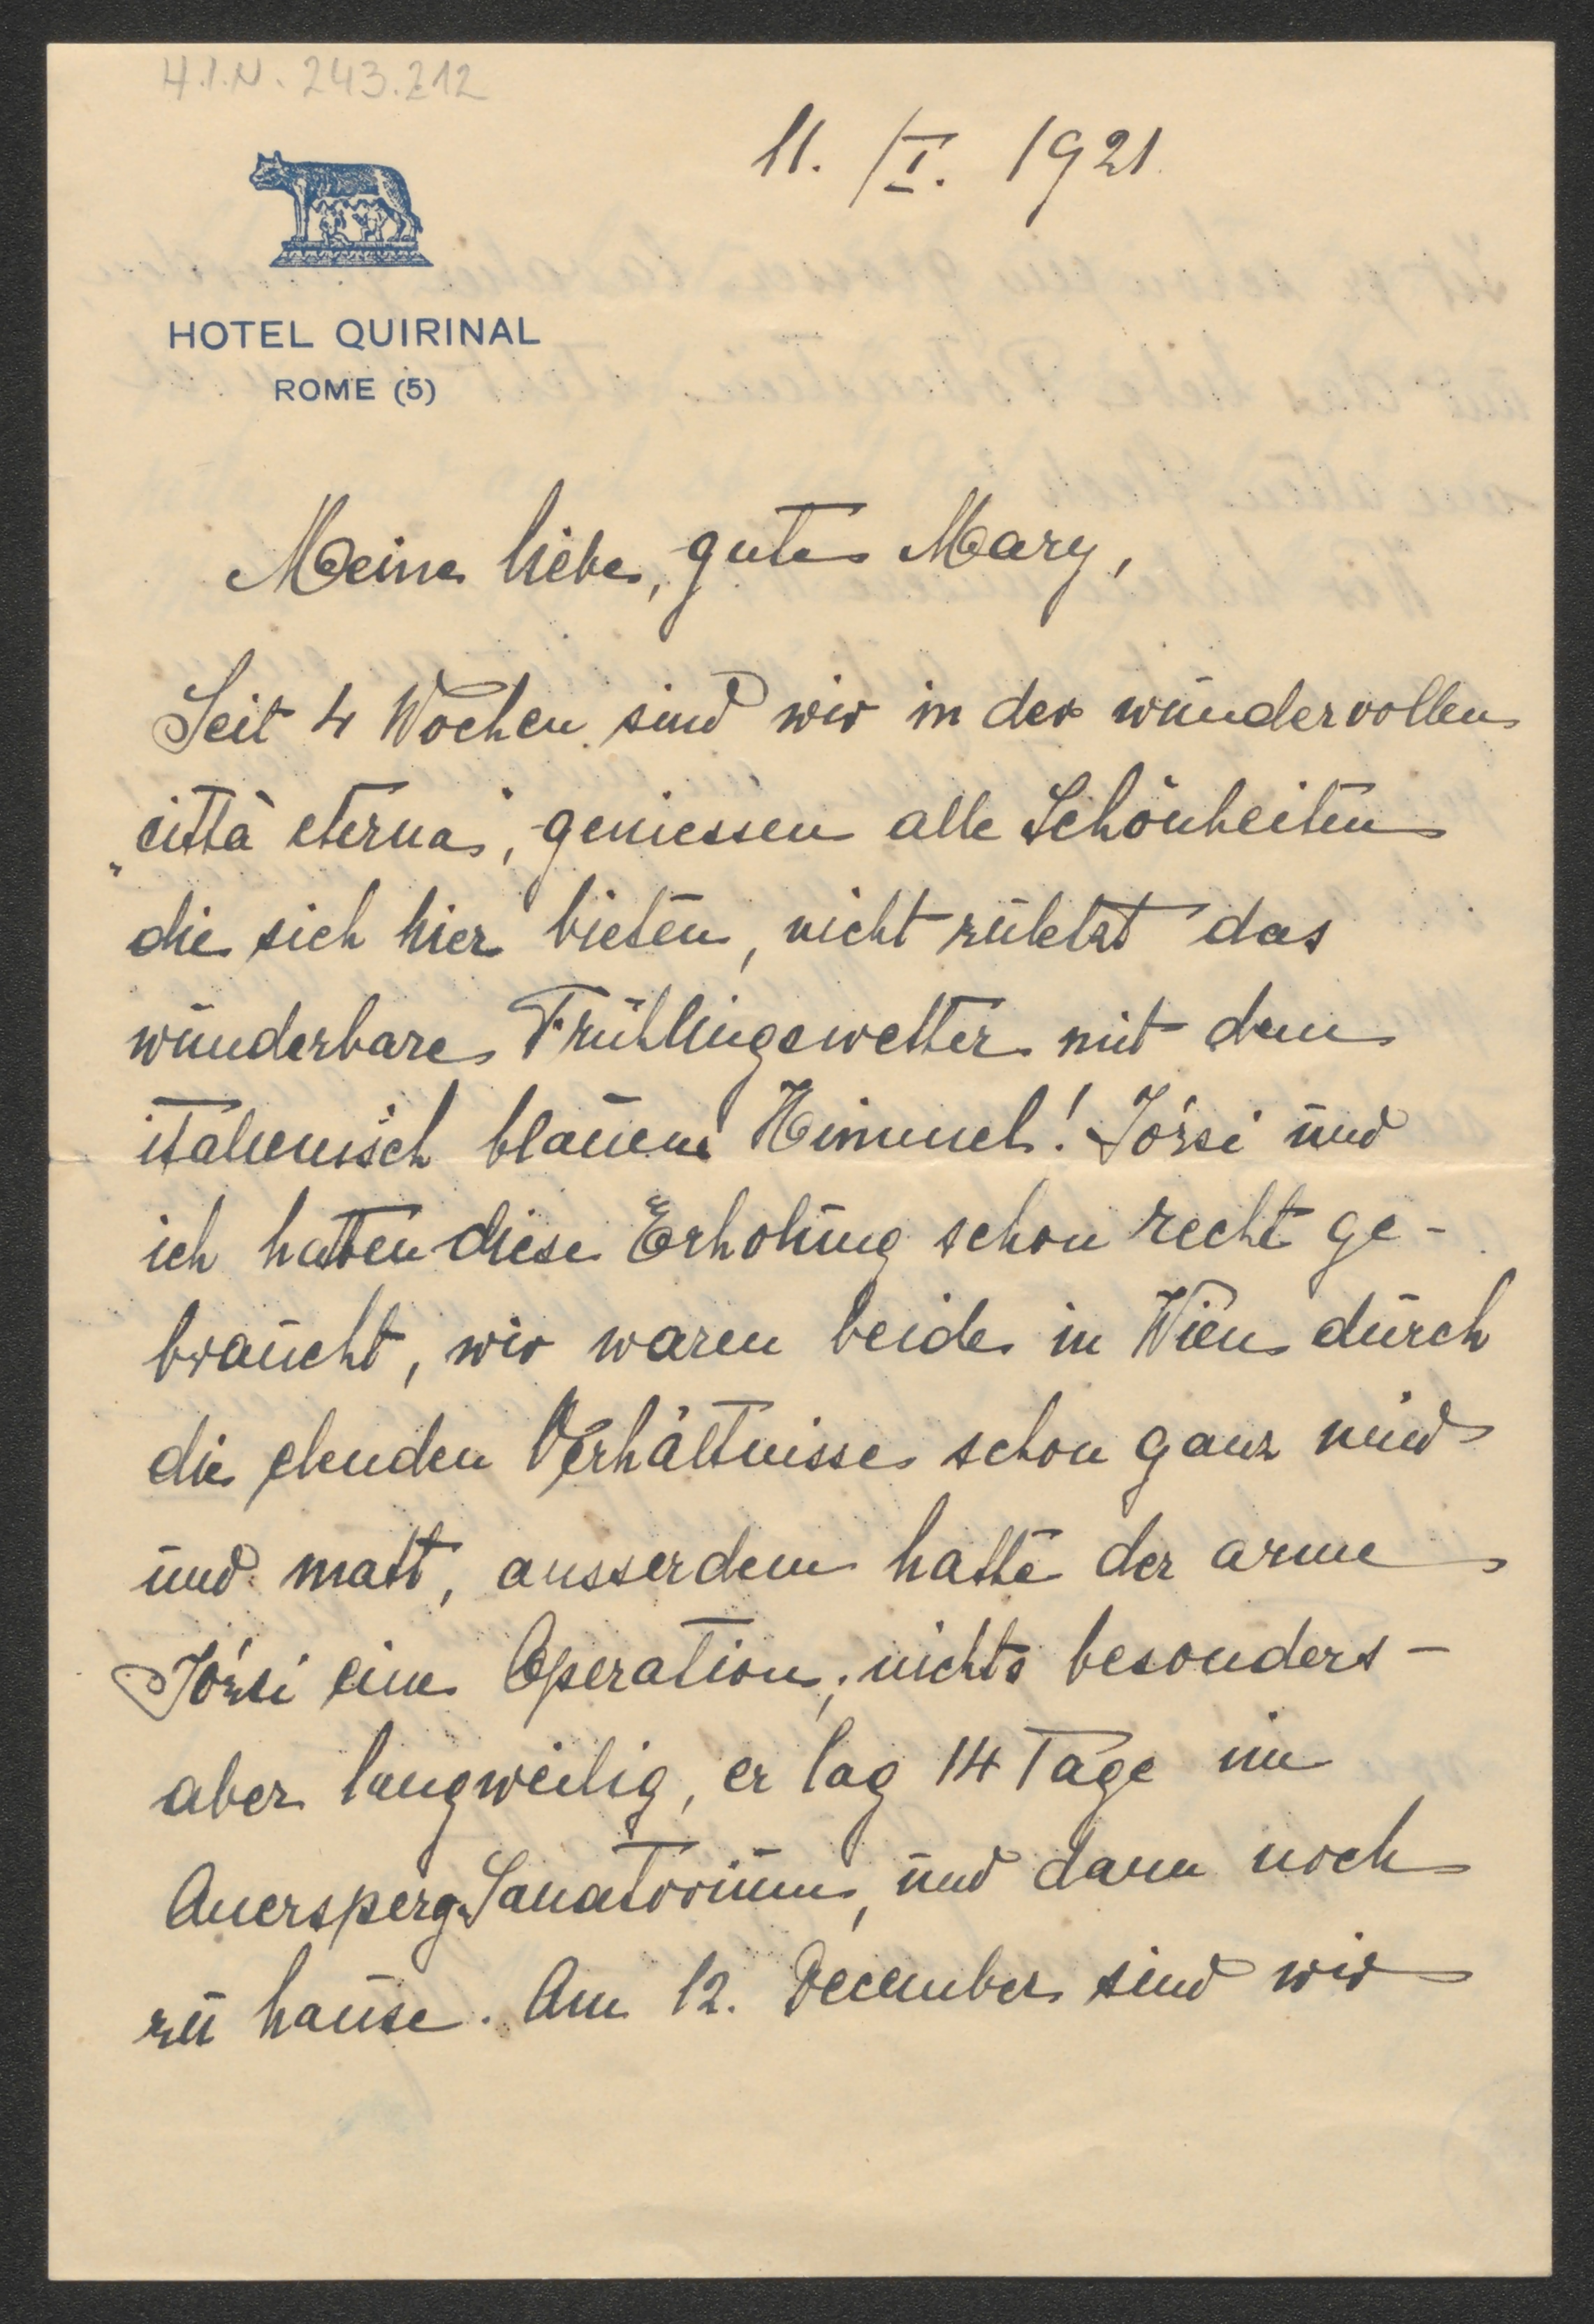 H.I.N. 243.212
11. /I. 1921
HOTEL QUIRINAL
ROME (5)
Meine liebe, gute Mary,
Seit 4 Wochen sind wir in der wundervollen
„città eterna", geniessen alle Schönheiten
die sich hier bieten, nicht zuletzt das
wunderbare Frühlingswetter mit dem
italienisch blauem Himmel! Józsi und
ich hatten diese Erholung schon recht ge-
braucht, wir waren beide in Wien durch
die elenden Verhältnisse schon ganz müd
und matt, ausserdem hatte der arme
Józsi eine Operation, nichts besonders -
aber langweilig, er lag 14 Tage im
Auersperg-Sanatorium, und dann noch
zu hause. Am 12. December sind wir